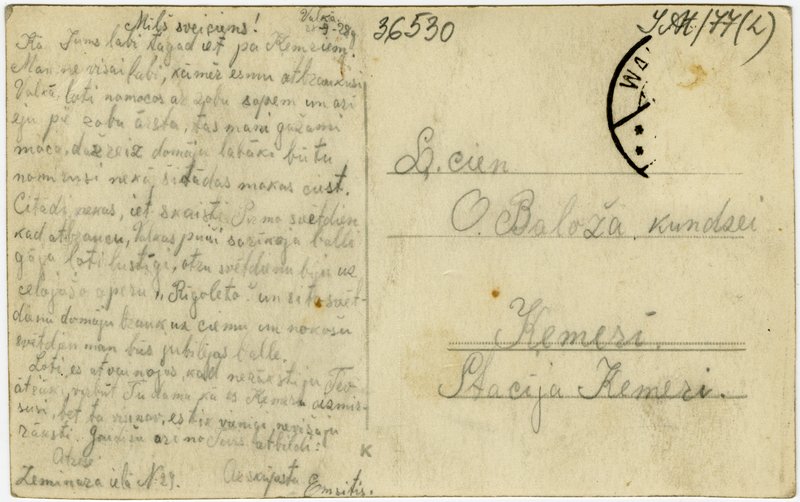 Mīļš sveiciens!
Valkā
9-28g
Kā Jums labi tagad iet pa Ķemeriem.
Man ne visai labi, kāmēr esmu atbraukusi
Valkā, ļoti nomocos ar zobu sāpem un arī
eju pie zobu ārsta, tas mani gaužami
moca, dažreiz domāju labāki būtu
nomirusi nekā šitādas mokas ciest.
Citādi nekas, iet skaisti. Pirmo svētdien
kad atbraucu, Valkas puiši sarīkoja balli
gāja ļoti lustīgi, otru svētdienu biju uz
ceļojošo operu "Rigoleto" un šito svēt-
dienu domāju braukt uz ciemu un nākošu
svētdien man būs jubilējas balle.
Ļoti es atvainojos, kad nerakstīju Tev
ātrāk, varbūt Tu domā ka es Ķemeru aizmir-
susi, bet tā nav, es tik nevarēju
rakstīt. Gaidīšu arī no Jums atbildi!
Adrese
Zemināra ielā N. 29.
Ar skūpstu
Emsitis.
K
36530
JAK/77(L)
WA
L. cien
O. Baloža kundzei
Ķemeri.
Stacija Ķemeri.